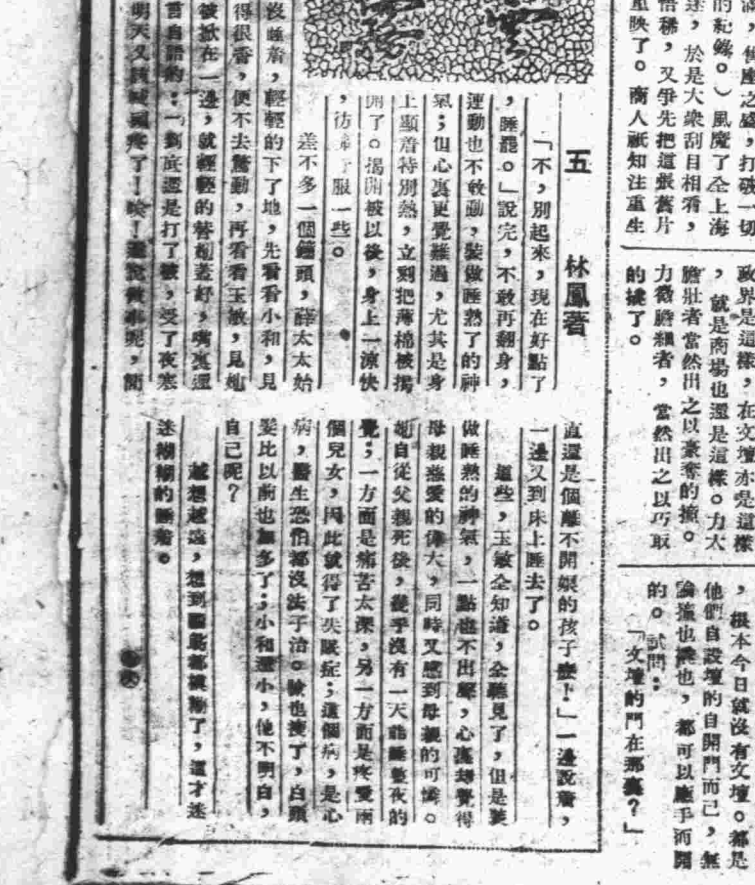 滿，
打破一切
的紀錄。）風魔了全上海
，於是大衆刮目相看，
稀，又爭先把這張舊片
重映了。商人祇知注重生
政界是這樣，在文壇亦是這樣
，就是商場也還是這樣。力大
膽壯者當然出之以豪奪的搶。
力微膽細者，當然出之以巧取
的據了。
，根本今日就沒有文壇。都是
他們自設壇的自開門而已，無
論搖也撲也，都可以應手而開
的。試問：
「文壇的門在那裏？」
五
林鳳著
「不，別起來，現在好點了
，睡罷。」說完，不敢再翻身，
運動也不敢動，裝做睡熟了的神
氣；但心裏更覺難過，尤其是身
上顯着特別熱，立刻把薄棉被揭
開了。揭開被以後，身上一涼快
，彷
服一些。
差不多一個鐘頭，薛太太始
沒睡着，輕輕的下了地，先看看小和，見
得很香，便不去驚動，再看看玉敏，見她
被掀在一邊，就輕輕的替她蓋好，嘴裏還
言自語的：一到底還是打了被，受了夜寒
明天又該喊頭疼了！唉！還說做事呢，簡
直還是個離不開娘的孩子麼！」一邊說着，
一邊又到床上睡去了。
這些，玉敏全知道，全聽見了，但是裝
做睡熟的神氣，一點也不出聲，心裏却覺得
母親慈愛的偉大，同時又感到母親的可憐。
她自從父親死後，幾乎沒有一天能睡整夜的
覺；一方面是痛苦太深，另一方面是疼愛兩
個兒女，因此就得了失眠症；這個病，是心
病，醫生恐怕都沒法子治。臉也瘦了，白頭
髮比以前也加多了；小和還小，他不明白，
自己呢？
越想越遠，想到腦筋都模糊了，這才迷
迷糊糊的睡着。